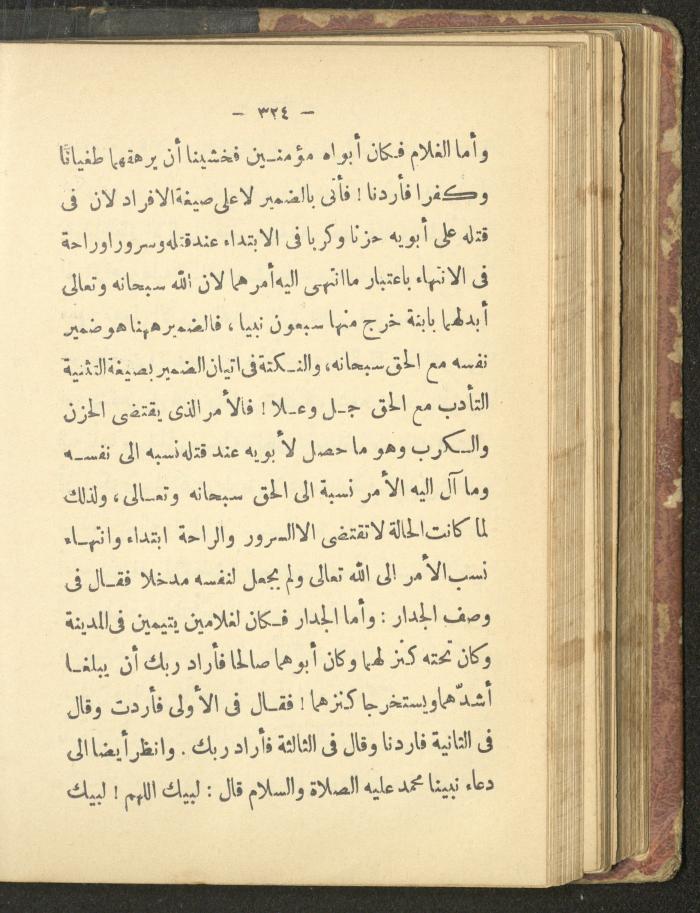 — ٣٢٤ —
وأما الغلام فكان أبواه مؤمنين فخشينا أن يرهقهما طغيانًا
وكفرا فأردنا ! فأتى بالضمير لا على صيغة الافراد لان فى
قتله على أبويه حزنا وكربا فى الابتداء عند قتله وسرورا وراحة
فى الانتهاء باعتبار ما انتهى اليه أمرهما لان الله سبحانه وتعالى
أبدلهما بابنة خرج منها سبعون نبيا ، فالضمير ههنا هو ضمير
نفسه مع الحق سبحانه، والنكتة فى اتيان الضمير بصيغة التثنية
التأدب مع الحق جل وعلا ! فالأمر الذى يقتضى الحزن
والكرب وهو ما حصل لأبويه عند قتله نسبه الى نفسه
وما آل اليه الأمر نسبة الى الحق سبحانه وتعالى ، ولذلك
لما كانت الحالة لا تقتضى الا السرور والراحة ابتداء وانتهاء
نسب الأمر الى الله تعالى ولم يجعل لنفسه مدخلا فقال فى
وصف الجدار : وأما الجدار فكان لغلامين يتيمين فى المدينة
وكان تحته كنز لهما وكان أبوهما صالحا فأراد ربك أن يبلغا
أشدّهما ويستخرجا كنزهما ! فقال فى الأولى فأردت وقال
فى الثانية فاردنا وقال فى الثالثة فأراد ربك . وانظر أيضا الى
دعاء نبينا محمد عليه الصلاة والسلام قال : لبيك اللهم ! لبيك